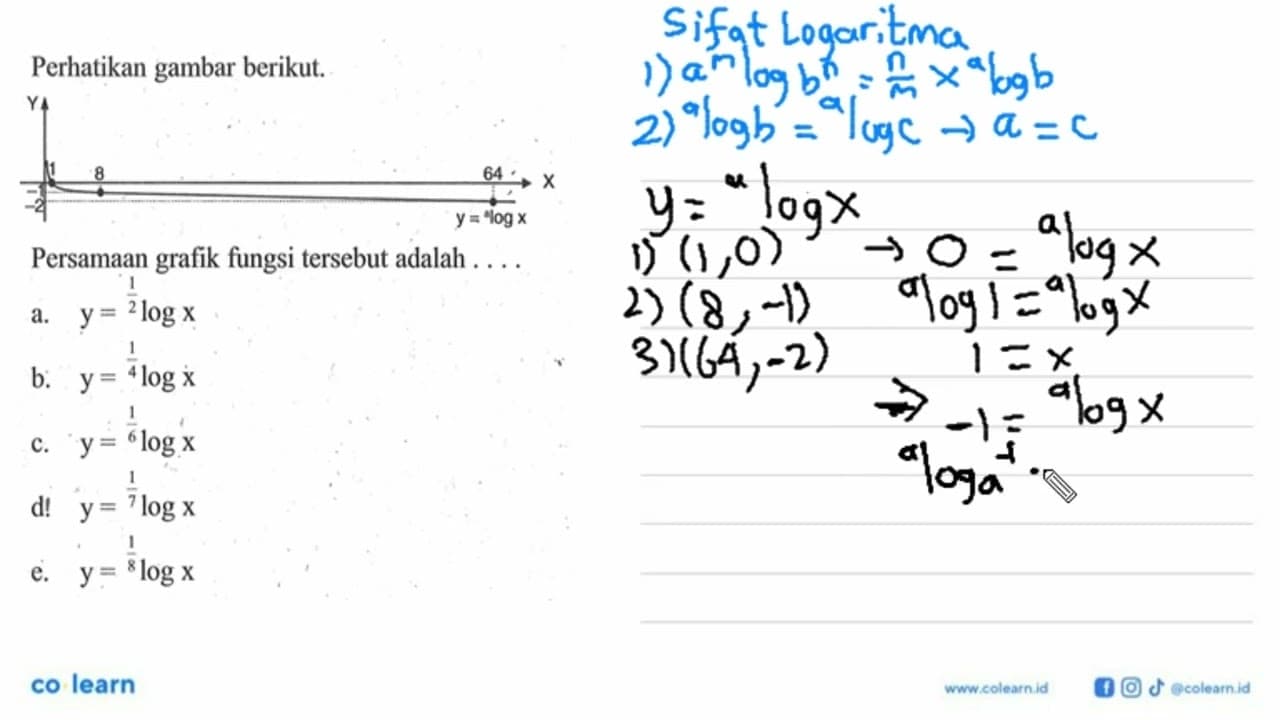 Perhatikan gambar berikut.
Y
1 8 64 X
-1
-2
y = ᵃlog x
Persamaan grafik fungsi tersebut adalah . . . .
a. y = ^{1/2}log x
b. y = ^{1/4}log x
c. y = ^{1/6}log x
d! y = ^{1/7}log x
e. y = ^{1/8}log x
Sifat Logaritma
1) a^m log b^n = n/m × ᵃlog b
2) ᵃlog b = ᵃlog c → a = c
y = ᵃlog x
1) (1,0) → 0 = ᵃlog x
2) (8,-1) ᵃlog 1 = ᵃlog x
3) (64,-2) 1 = x
⇒ -1 = ᵃlog x
ᵃlog a^-1
co learn
www.colearn.id @colearn.id